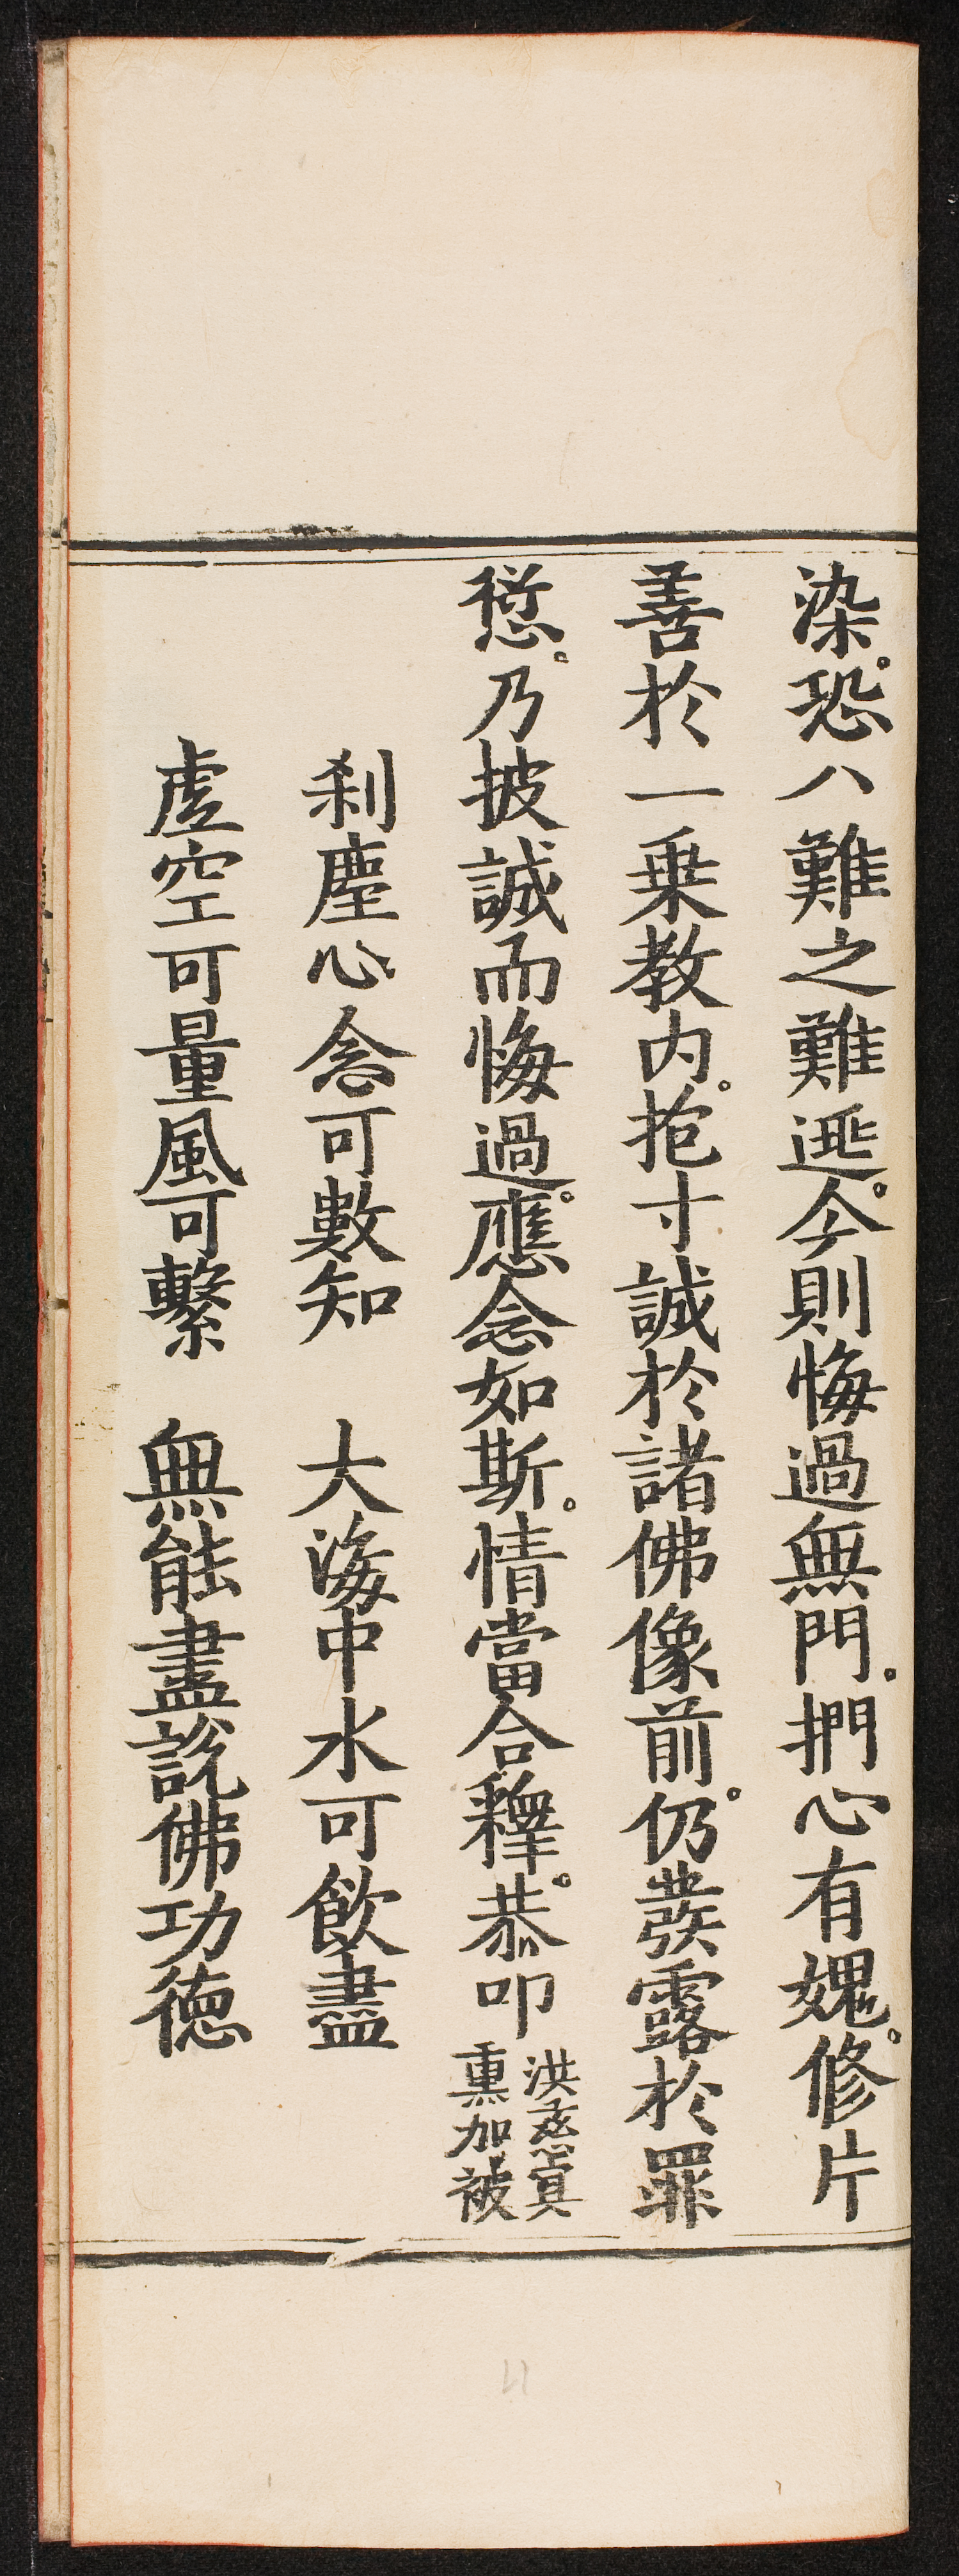 染。恐八難之難逃。今則悔過無門。捫心有媿。修片
善於一乗教内。抱寸誠於諸佛像前。仍發露於罪
愆。乃披誠而悔過。應念如斯。情當合釋。恭叩
洪慈冥
熏加被
刹塵心念可數知 大海中水可飲盡
虛空可量風可繫 無能盡説佛功德